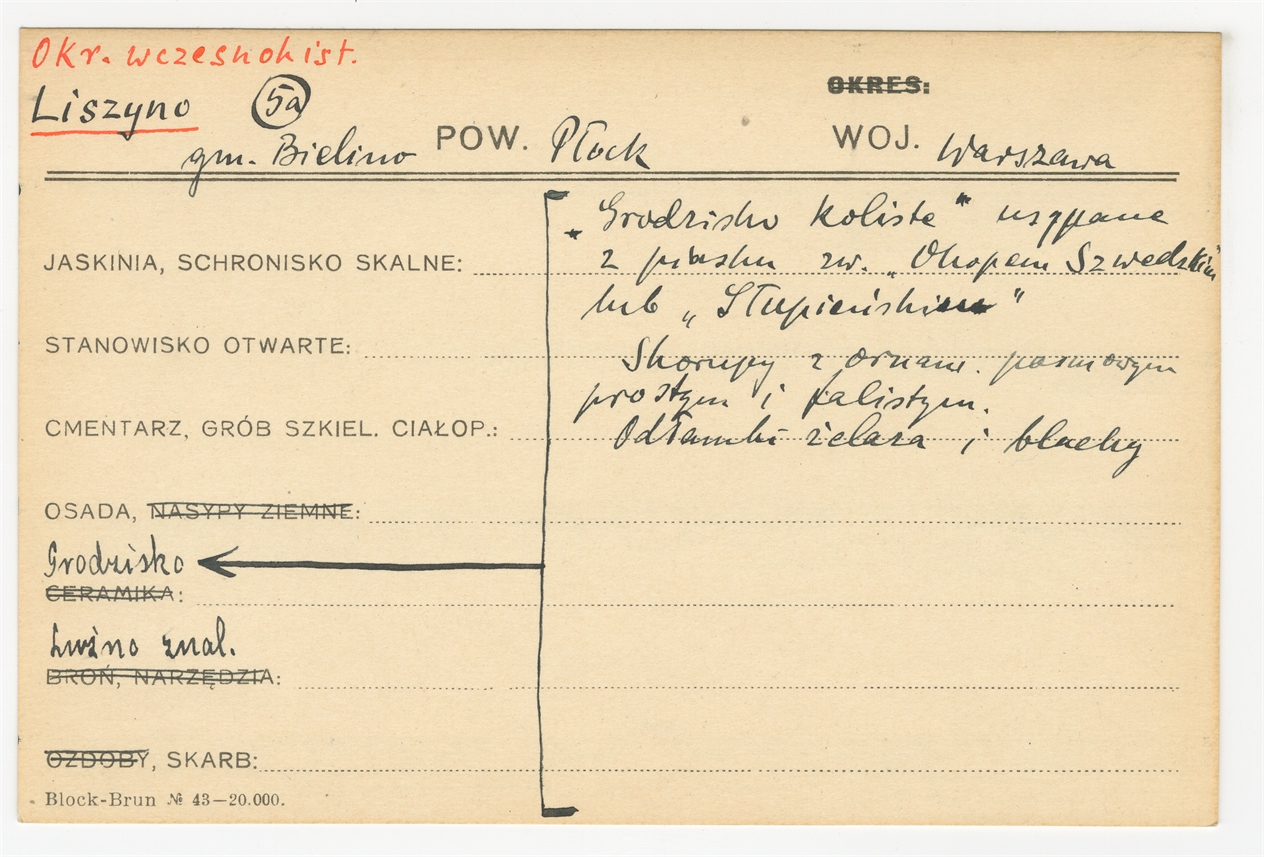 Okr. wczesnohist.
Liszyno 5a OKRES:
gm. Bielino POW. Płock WOJ. Warszawa
„Grodzisko koliste" usypane
JASKINIA, SCHRONISKO SKALNE: z piasku zw. „Okopem Szwedzkim
lub „Słupieńskim"
STANOWISKO OTWARTE: Skorupy z ornam. pasmowym
prostym i falistym.
CMENTARZ, GRÓB SZKIEL. CIAŁOP.: Odłamki żelaza i blachy
OSADA, NASYPY ZIEMNE:
Grodzisko
CERAMIKA:
Luźno znal.
BROŃ, NARZĘDZIA:
OZDOBY, SKARB:
Block-Brun № 43—20.000.